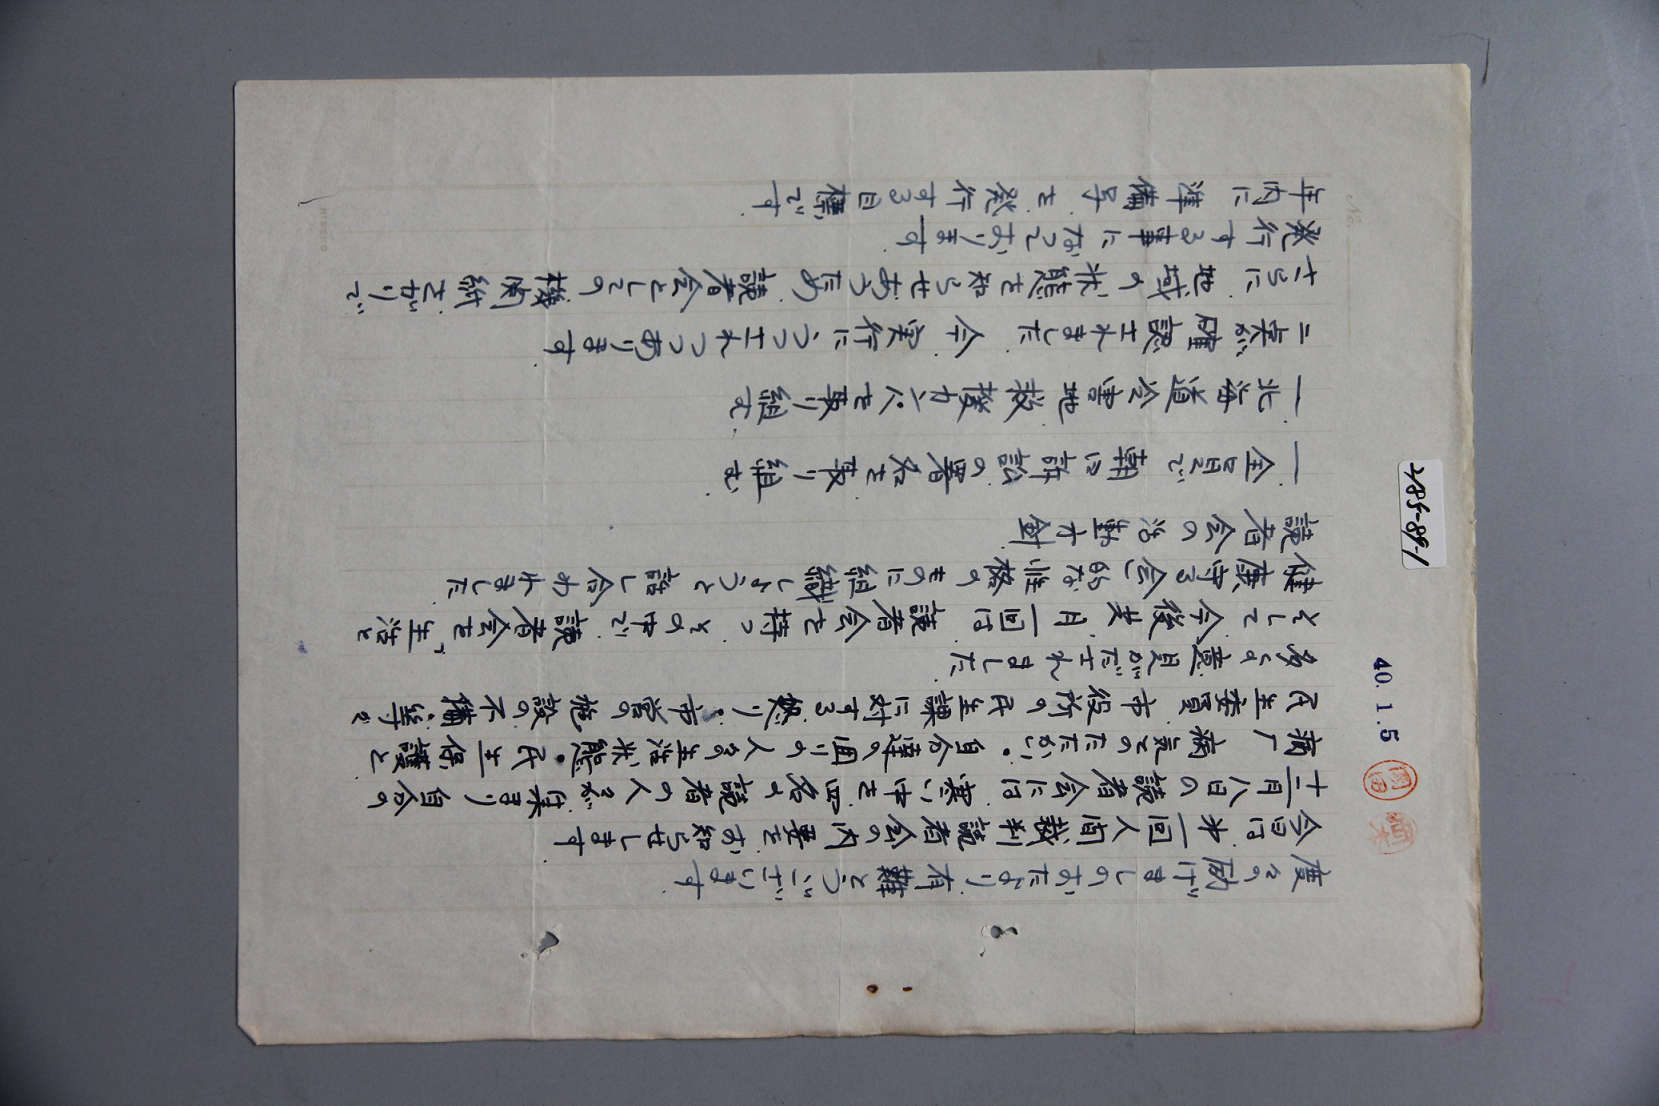 度々の励げましのおたより有難とうございます
今日は才一回人間裁判読者会の内要をお知らせします
十二月八日の読者会には寒い中を四名の読者の人々が集まり自分の
病厂病気とのたたかい・自分達の囲りの人々の生活状態・民生保護と
民生委員市役所の民生課に対する怒り・市営の施設の不備・等々
多くの意見がだされました
そして今後共月一回は読者会を持つその中で読者会を"生活と
健康守る会"的な性格のものに組織しようと話し合われました
読者会の活動方針
一 全員で朝日訴訟の署名を取り組む
一 北海道冷害地救援カンパを取り組む
二点が確認されました 今実行にうつされつつあります
さらに地域の状態を知らせあうため読者会としての機関紙をガリで
発行する事になっております
年内に準備号を発行する目標です
40.1.5